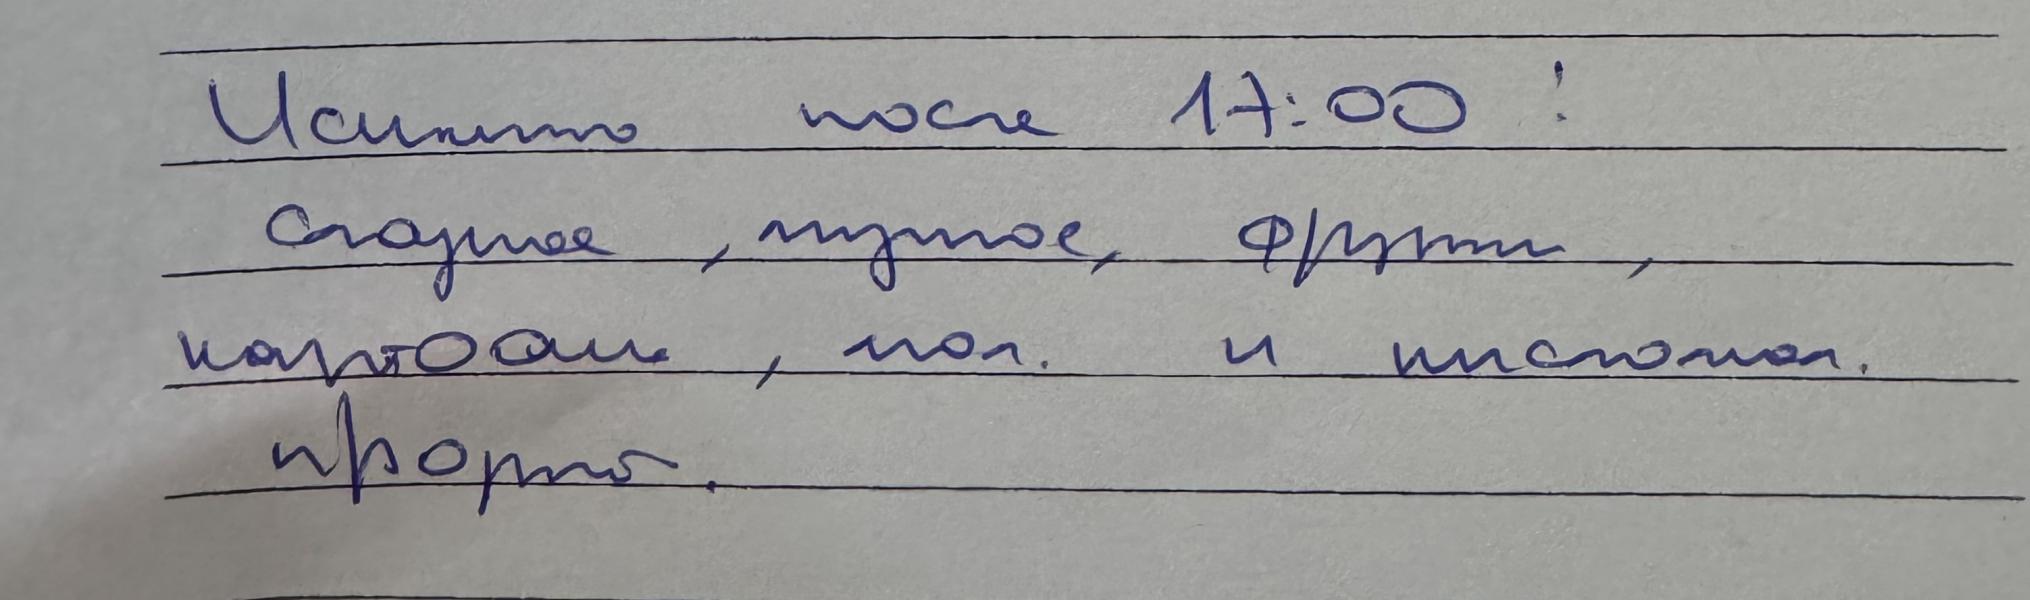 Исключить после 17:00!
сладкое, мучное, фрукты,
картофель, мол. и кисломол.
продукты.